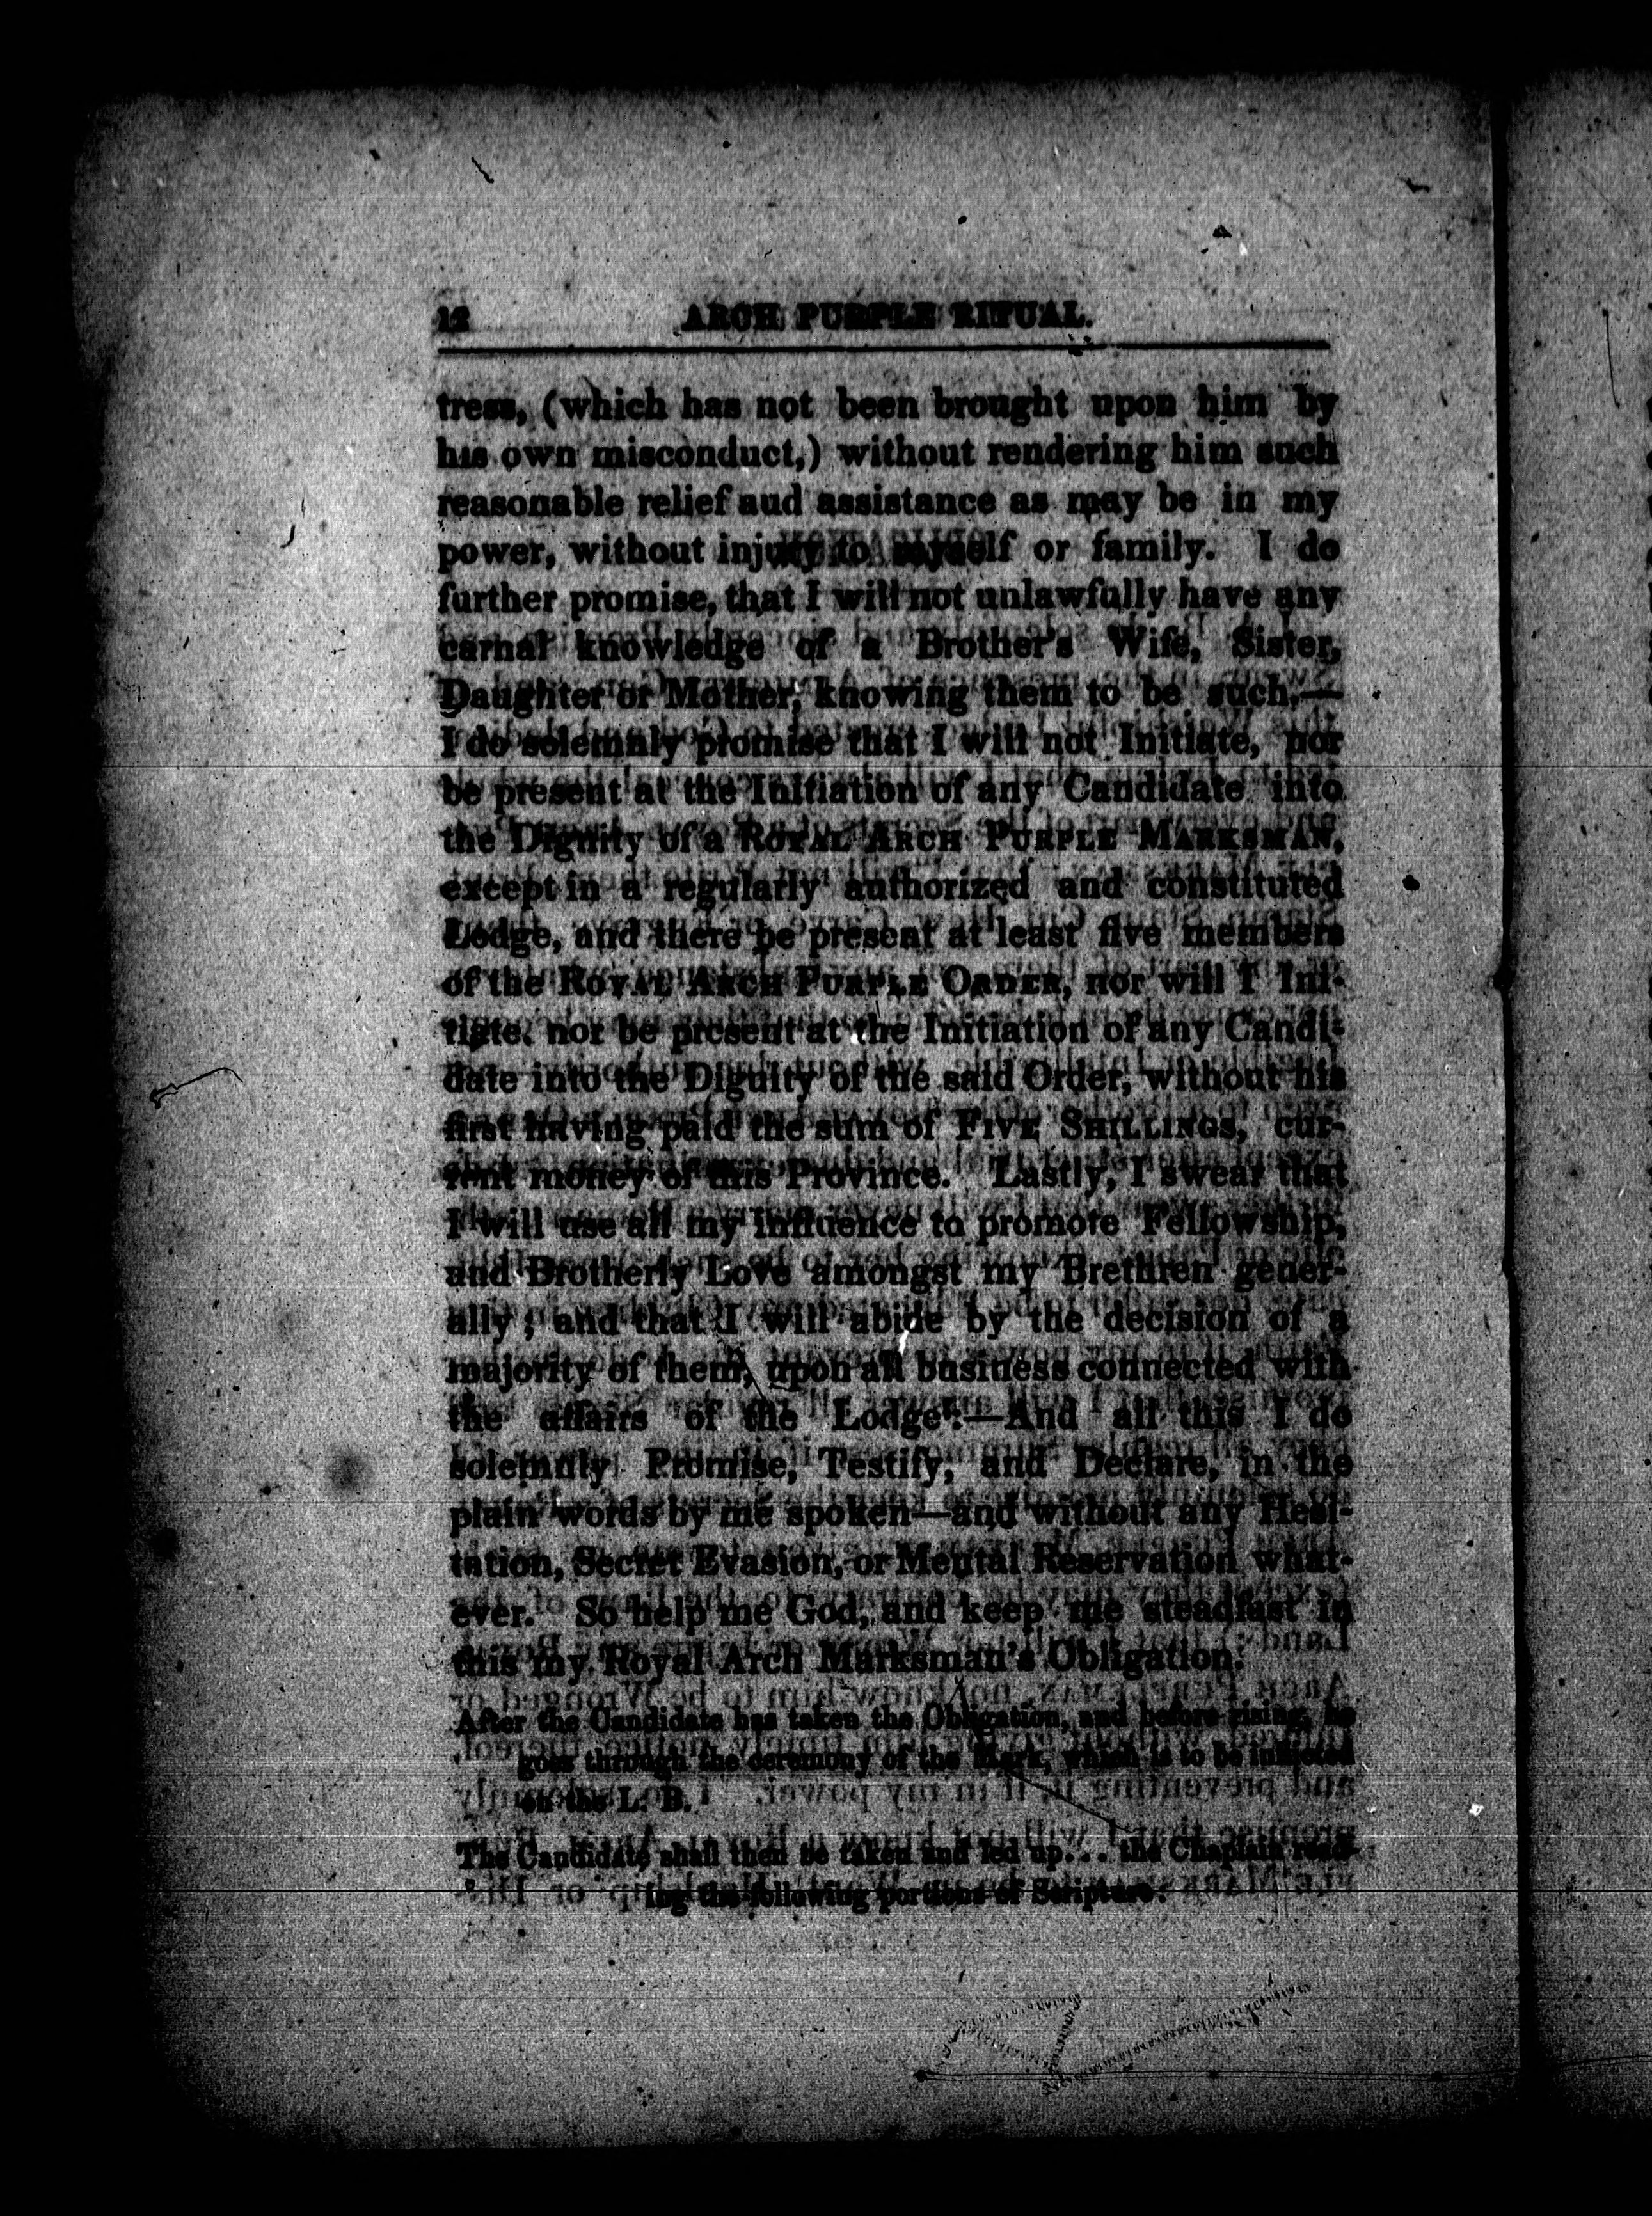 12 ARCH PURPLE RITUAL.
tress, (which has not been brought upon him by
his own misconduct,) without rendering him such
reasonable relief aud assistance as may be in my
power, without injury to myself or family. I do
further promise, that I will not unlawfully have any
carnal knowledge of a Brother's Wife, Sister,
Daughter or Mother, knowing them to be such.—
I do solemnly promise that I will not Initiate, nor
be present at the Initiation of any Candidate into
the Dignity of a ROYAL ARCH PURPLE MARKSMAN,
except in a regularly authorized and constituted
Lodge, and there be present at least five members
of the ROYAL ARCH PURPLE ORDER, nor will I Ini-
tiate, nor be present at the Initiation of any Candi-
date into the Dignity of the said Order, without his
first having paid the sum of FIVE SHILLINGS, cur-
rent money of this Province. Lastly, I swear that
I will use all my influence to promote Fellowship,
and Brotherly Love amongst my Brethren gener-
ally; and that I will abide by the decision of a
majority of them, upon all business connected with
the affairs of the Lodge:—And all this I do
solemnly Promise, Testify, and Declare, in the
plain words by me spoken—and without any Hesi-
tation, Secret Evasion, or Mental Reservation what-
ever. So help me God, and keep me steadfast in
this my Royal Arch Marksman's Obligation.
After the Candidate has taken the Obligation, and before rising, he
goes through the ceremony of the Mark, which is to be inflicted
on the L. B.
The Candidate shall then be taken and led up... the Chaplain read-
ing the following portions of Scripture: